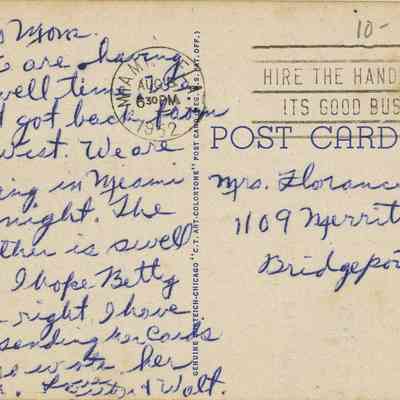 Mom.
are having
swell time. Ju
got back from
West. We are
ing in Meami
night. The
ther is swell
I hope Betty
right I have
sending her cards
wrote her
Walt.
MIAMI
AUG 7
6 30 PM
1952
10-
HIRE THE HAND
ITS GOOD BUS
POST CARD
GENUINE CURTEICH-CHICAGO "C.T. ART-COLORTONE" POST CARD (REG. U.S. PAT. OFF.)
Mrs. Floranc
1109 Merrit
Bridgepo